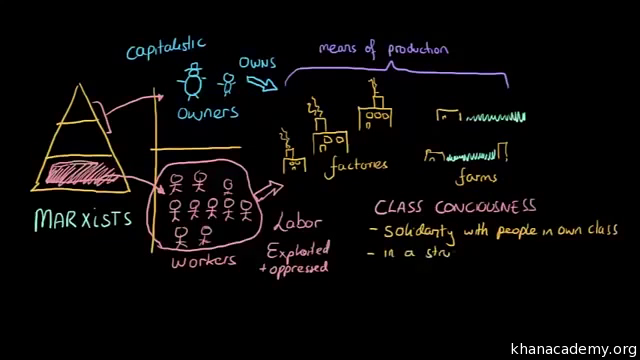 capitalistic
OWNS
means of production
owners
factories
farms
MARXISTS
Labor
CLASS CONCIOUSNESS
- Solidarity with people in own class
Exploited
+ oppressed
- in a stru
workers
khanacademy.org